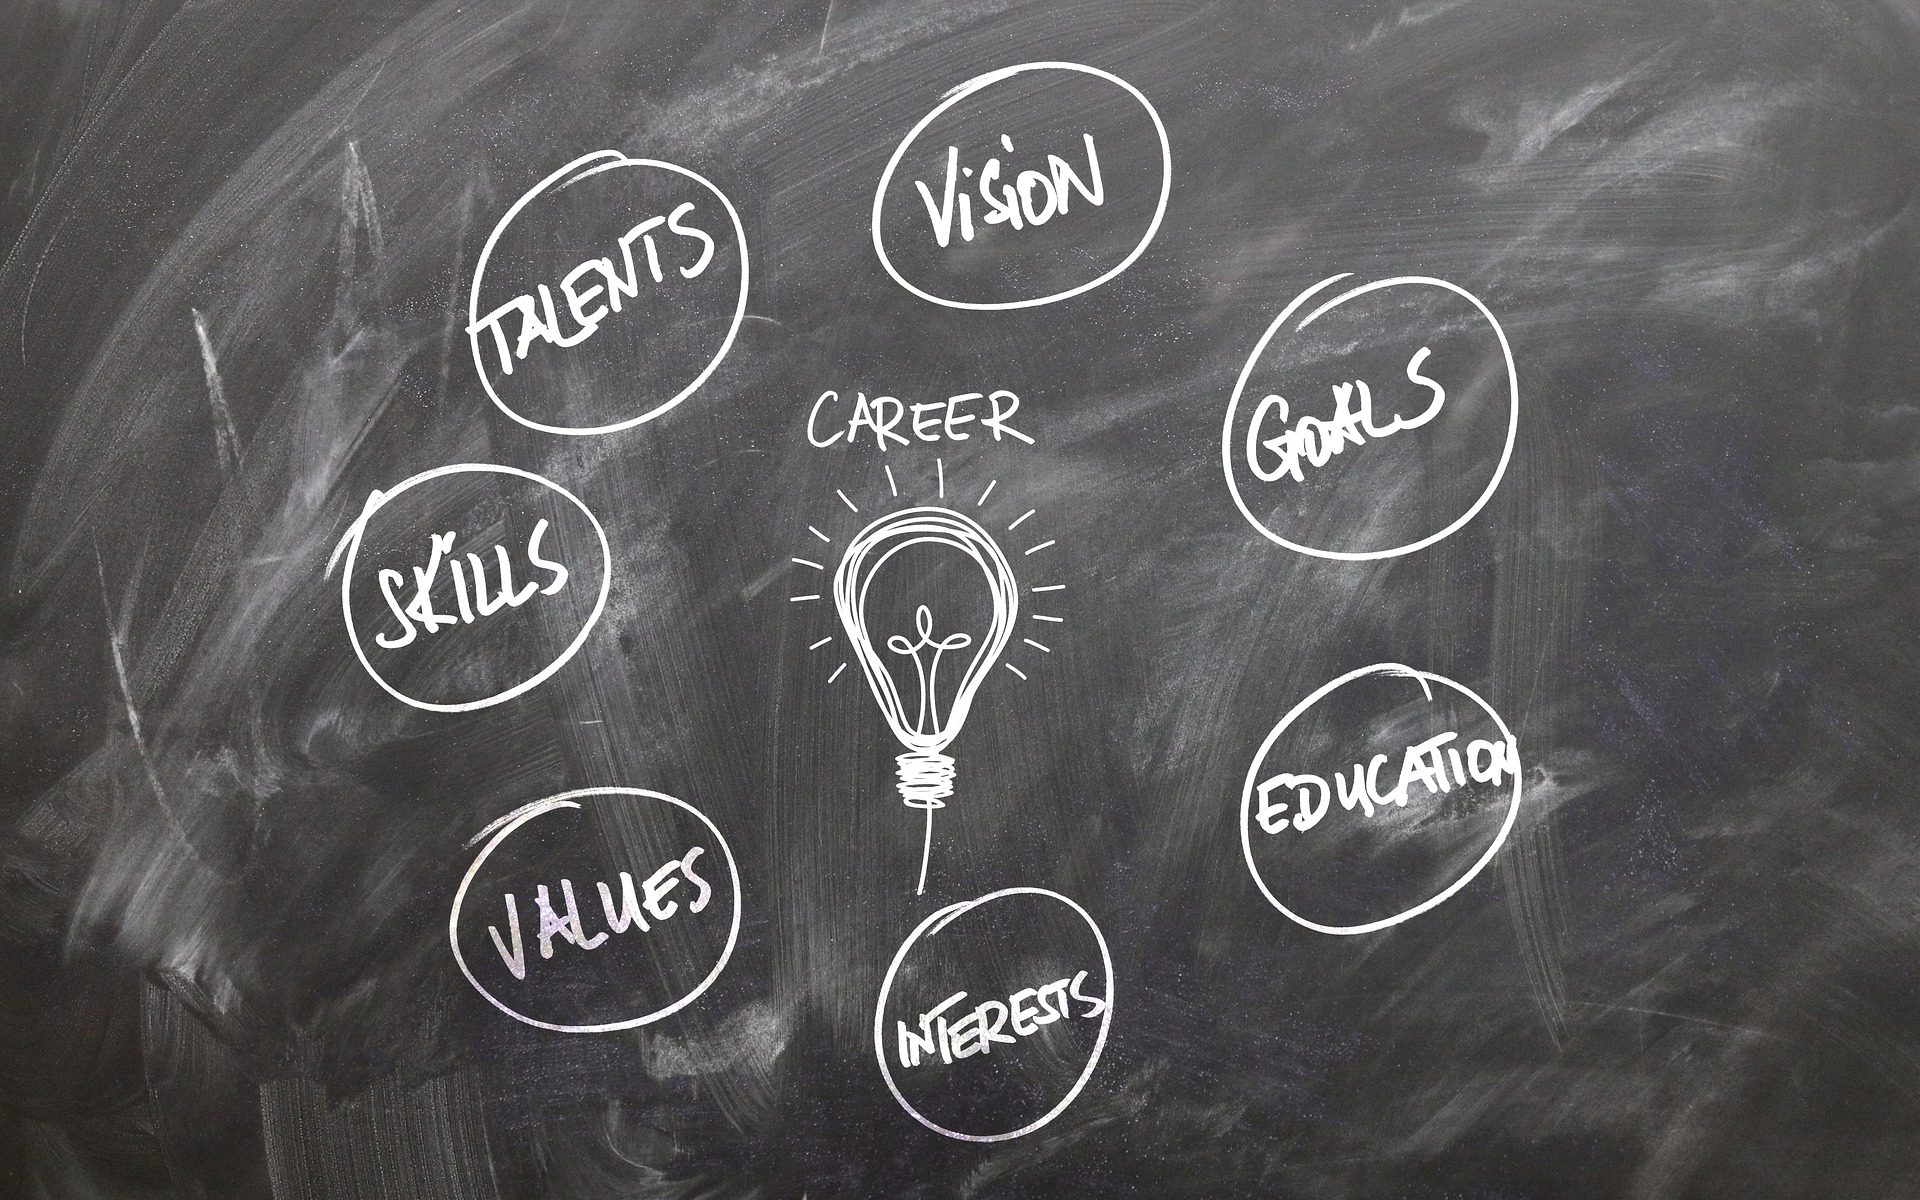 ViSiON
TALENTS
GOALS
CAREER
SKILLS
EDUCATION
VALUES
INTERESTS